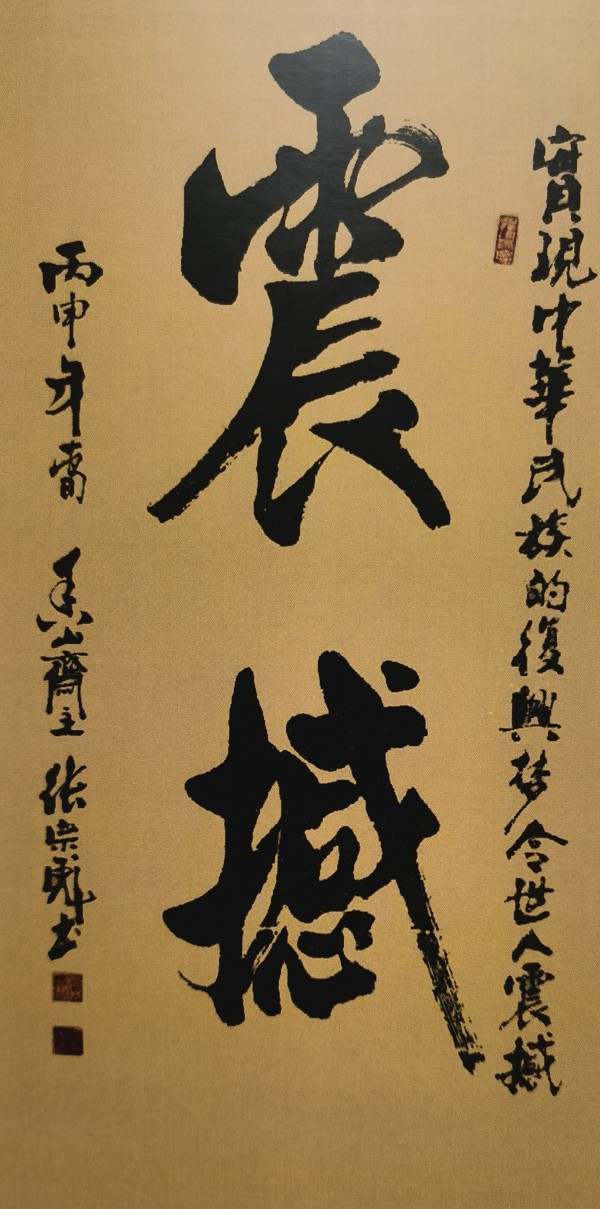 實現中華民族的復興梦令世人震撼
震撼
丙申年 香山齋主 张宗彪书